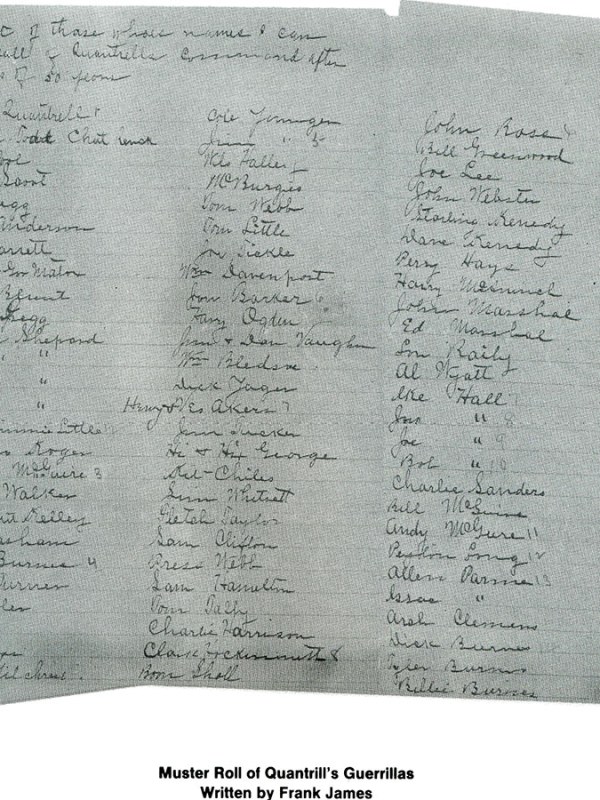 of those whose names I can
of Quantrells Command after
of 50 years
Quantrell
Todd Chat
Scott
Anderson
Garrett
Blunt
Gregg
Shepard
"
"
"
Little
Roger
McGuire 3
Walker
Kelley
Burnes 4
Cole Younger
Jim " 5
McBurgis
Tom Webb
Tom Little
Joe Tickle
Wm Davenport
Barker
Ogden
Jim & Dan Vaughn
Wm Bledsoe
Dick Yager
Henry & Wes Akers 7
Jim Tucker
Hi & Hix George
Kit Chiles
Jim Whitsett
Fletch Taylor
Sam Clifton
Press Webb
Sam Hamelton
Tom Tally
Charlie Harrison
Clark
Boon Sholl
John Rose
Bill Greenwood
Joe Lee
John Webster
Sterling Kenedy
Dave Kenedy
Perry Hays
John Marshal
Ed Marshal
Lon Raily
Al Wyatt
Ike Hall
Jno " 8
Joe " 9
Bob " 10
Charlie Sanders
Bill McGuire
Andy McGuire 11
Peyton Long 12
Allen Parmer 13
Isaac "
Arch Clemens
Dick Burnes
Burnes
Billie Burnes
Muster Roll of Quantrill's Guerrillas
Written by Frank James